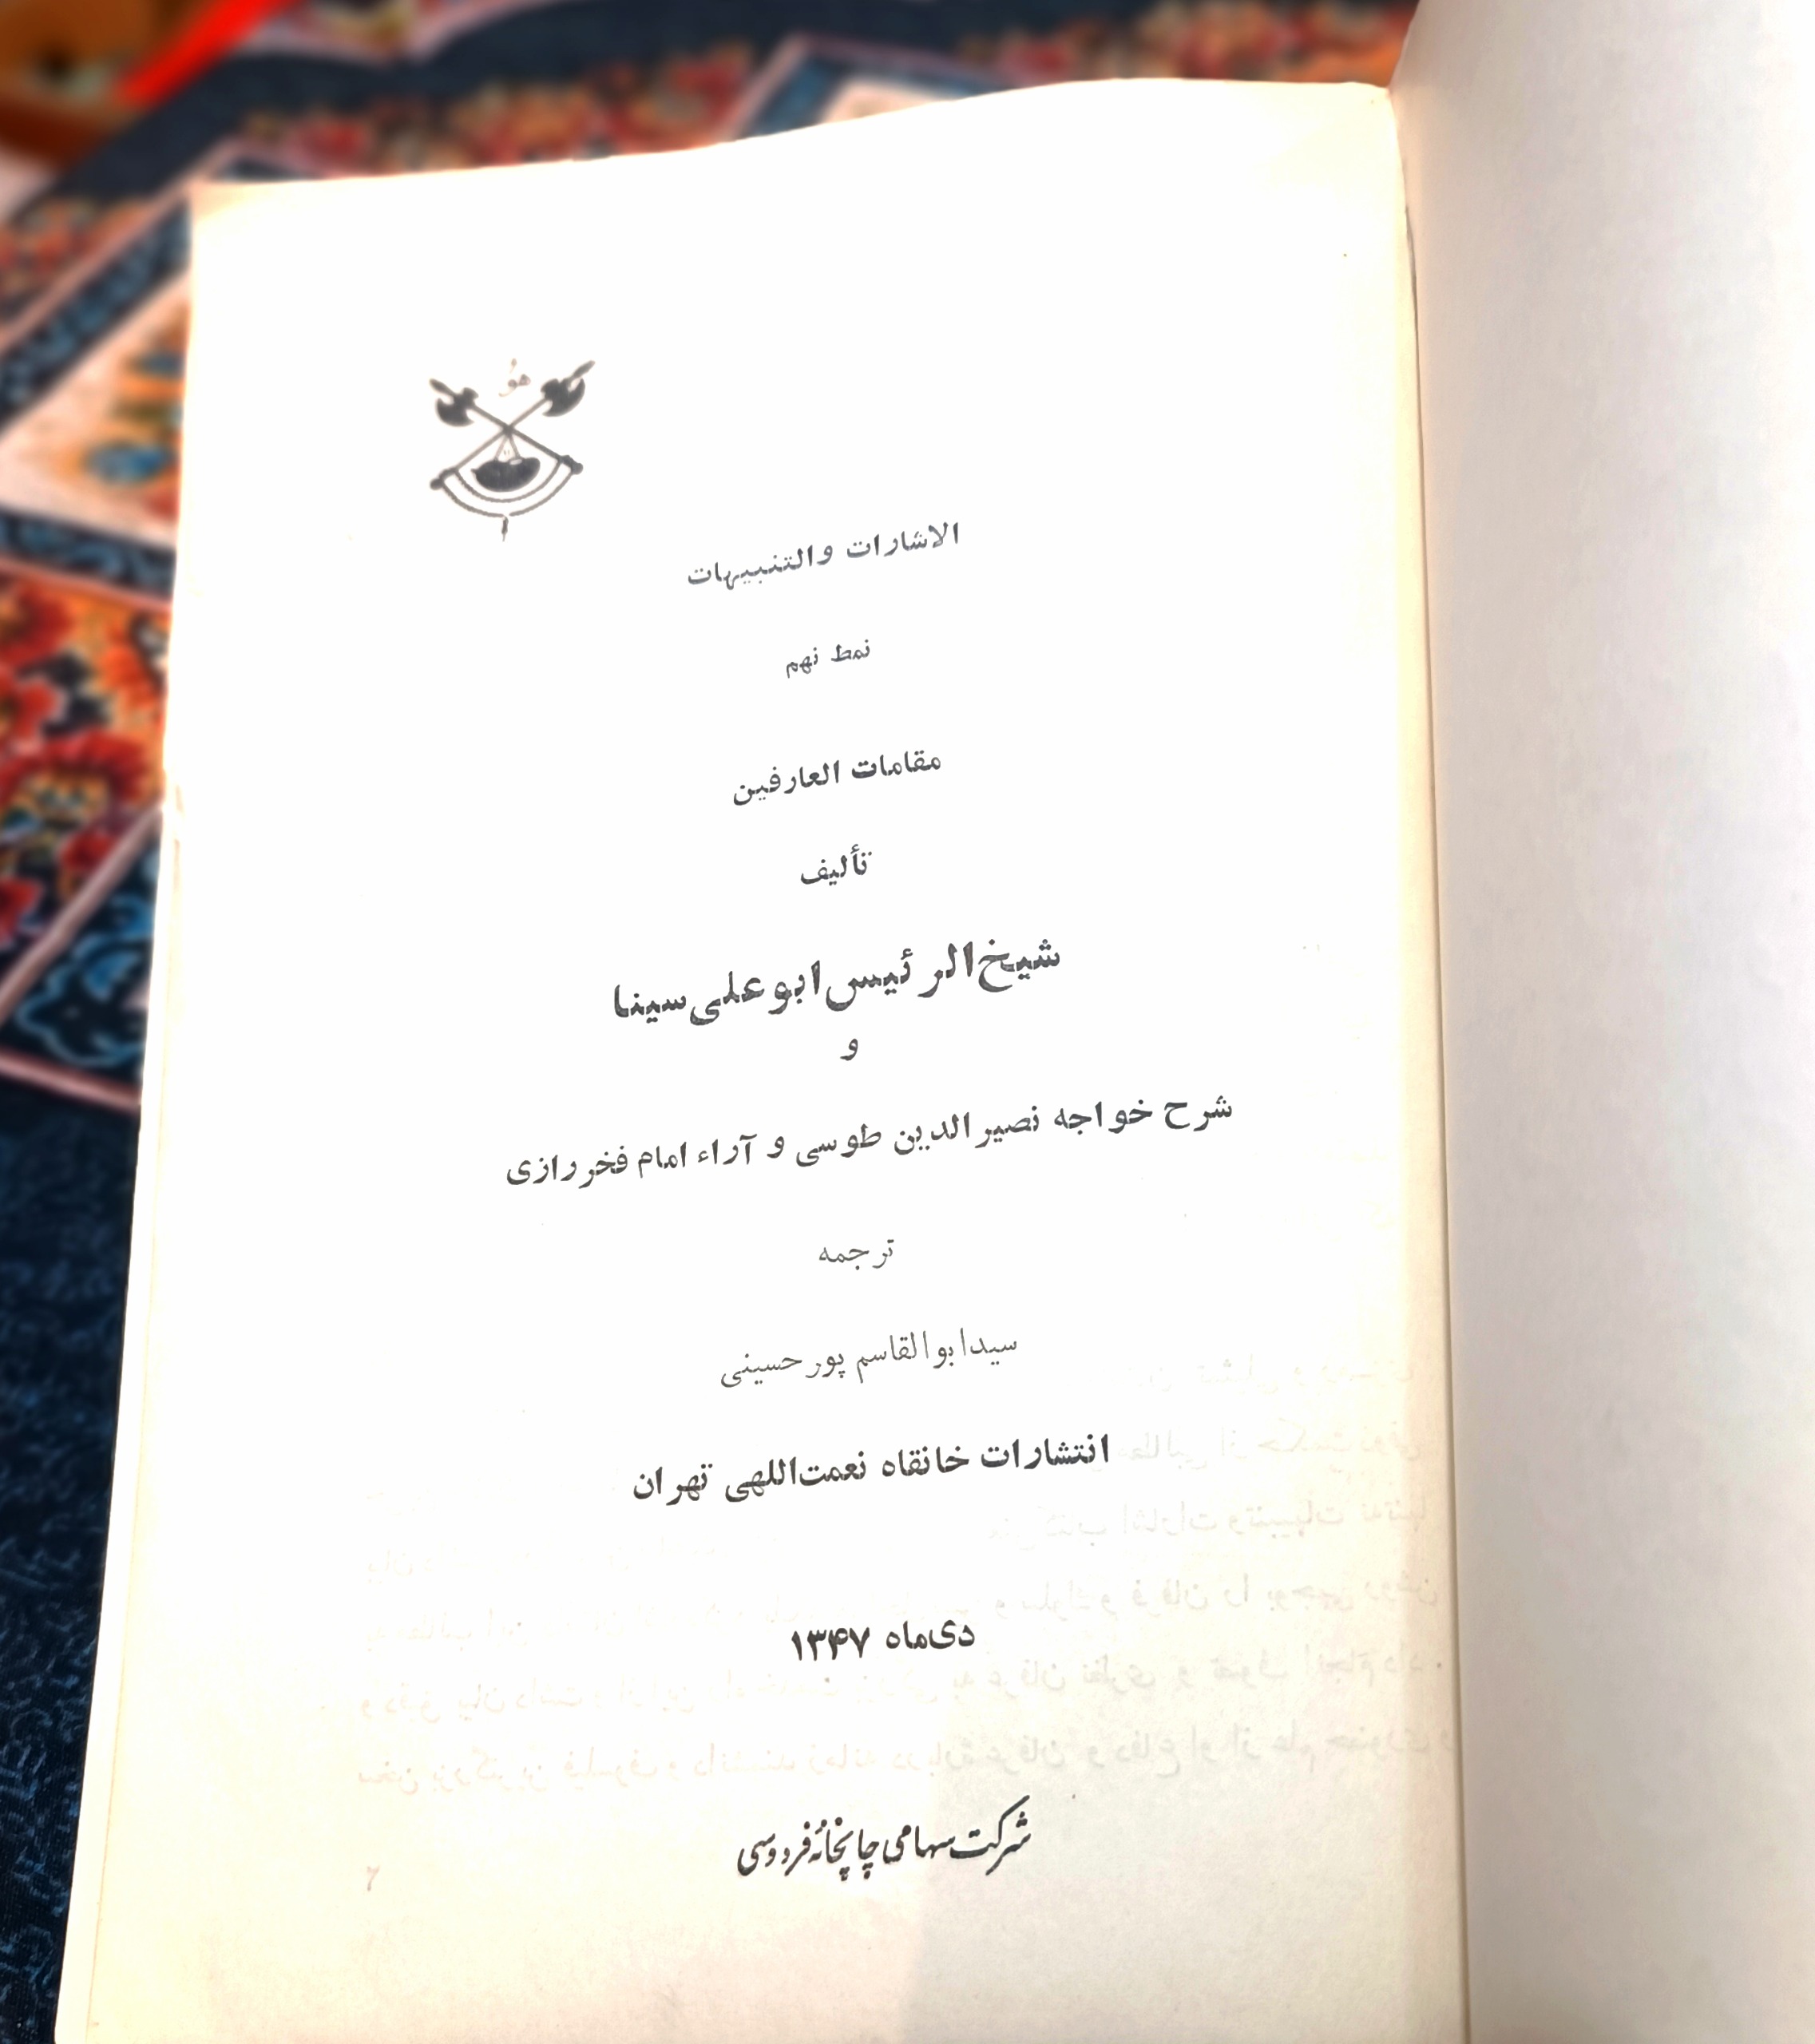 هو
الاشارات والتنبیهات
نمط نهم
مقامات العارفین
تألیف
شیخ‌الرئیس ابوعلی‌سینا
و
شرح خواجه نصیرالدین طوسی و آراء امام فخررازی
ترجمه
سیدابوالقاسم پورحسینی
انتشارات خانقاه نعمت‌اللهی تهران
دی‌ماه ۱۳۴۷
شرکت سهامی چاپخانهٔ فردوسی